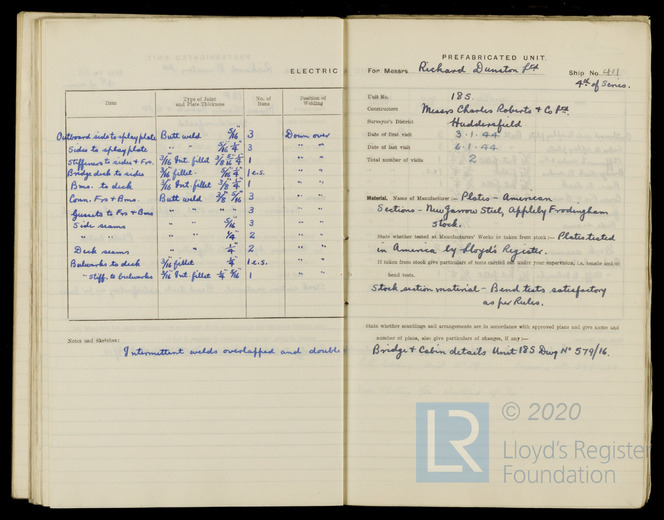 ELECTRIC
Item
Type of Joint and Plate Thickness
No. of Runs
Position of Welding
Outboard side to splay plate Butt weld 5/16" 3 Down over
Sides to splay plate " " 5/16" 1/4" 3 " "
Stiffeners to sides & Frs. 3/16" Int. fillet 1 " "
Bridge deck to sides 3/16 fillet 5/16" 1/4" 1 c.s. " "
Bms. to deck 3/16" Int. fillet 3/8" 1/4" 1 " "
Conn. Frs & Bms Butt weld 3/8" 5/16" 3 " "
Gussets to Frs & Bms " " " " 3 " "
Side seams " " 5/16" 3 " "
" " " " 1/4" 2 " "
Deck seams " " 1/4" 2 " "
Bulworks to deck 3/16 fillet 1/4" 1 c.s. " "
" Stiff. to bulworks 3/16 Int. fillet 1/4" 5/16" 1 " "
Notes and Sketches:
Intermittent welds overlapped and double
PREFABRICATED UNIT
For Messrs Richard Dunston Ltd Ship No. 401
4th of Series.
Unit No. 18S.
Constructors Messrs Charles Roberts & Co Ltd.
Surveyor's District Huddersfield
Date of first visit 3.1.44
Date of last visit 6.1.44
Total number of visits 2
Material. Name of Manufacturer :— Plates - American
Sections - New Jarrow Steel, Appleby Frodingham
Stock.
State whether tested at Manufacturers' Works or taken from stock :— Plates tested
in America by Lloyd's Register.
If taken from stock give particulars of tests carried out under your supervision, i.e. tensile and
bend tests.
Stock section material - Bend tests satisfactory
as per Rules.
State whether scantlings and arrangements are in accordance with approved plans and give name and
number of plans, also give particulars of changes, if any :—
Bridge & Cabin details Unit 18S Dwg No 579/16.
LR
© 2020
Lloyd's Register
Foundation